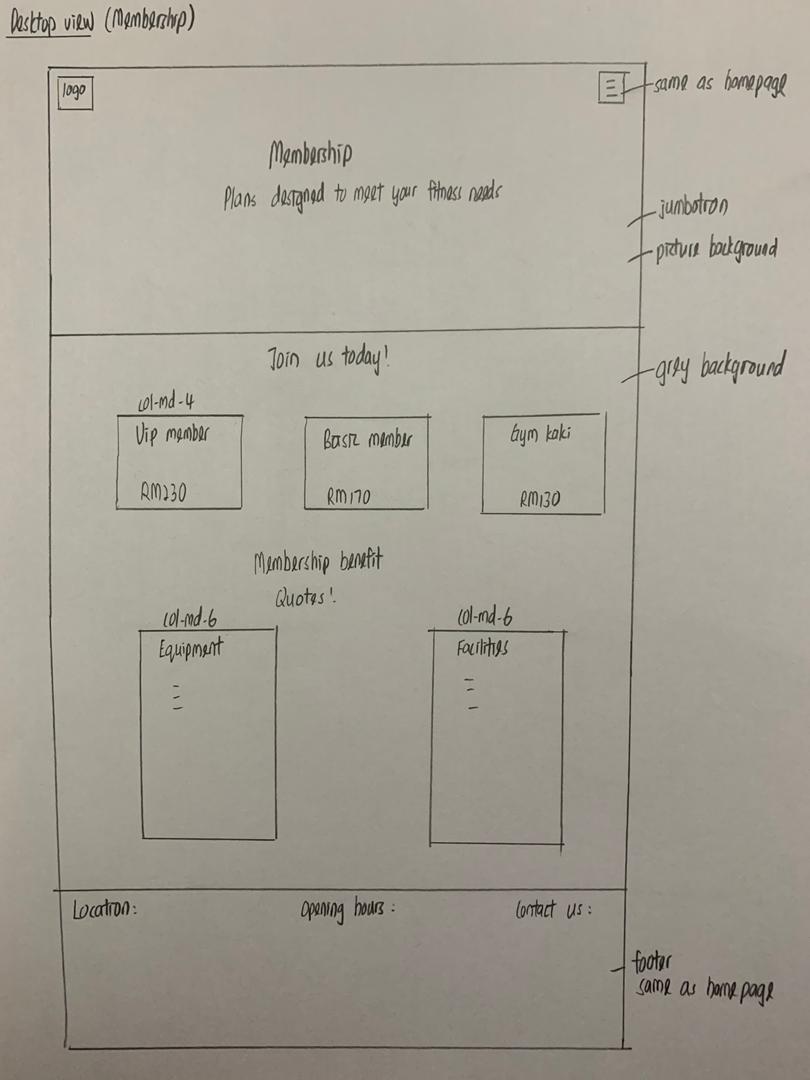 Desktop view (Membership)
logo
same as homepage
Membership
Plans designed to meet your fitness needs
jumbotron
picture background
Join us today!
grey background
col-md-4
Vip member
RM230
Basic member
RM170
Gym kaki
RM130
Membership benefit
Quotes!
col-md-6
Equipment
col-md-6
Facilities
Location:
Opening hours:
Contact us:
footer
same as homepage